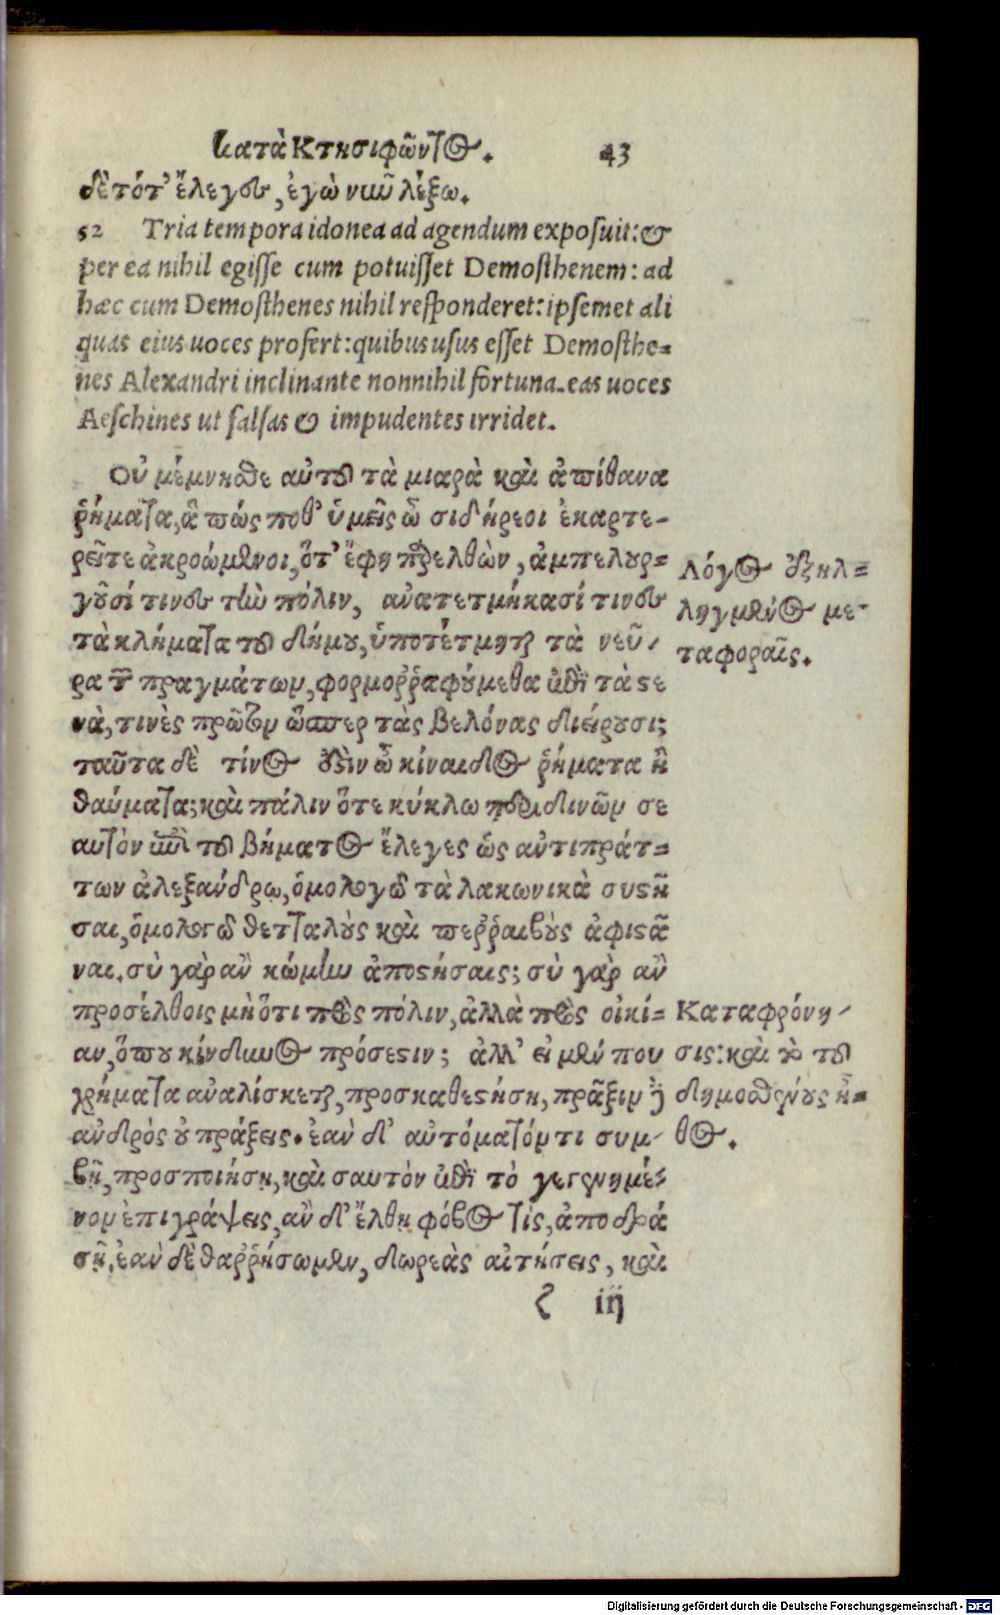 κατὰ Κτησιφῶντος. 43
δὲ τότ' ἔλεγες, ἐγὼ νῦν λέξω.
52 Tria tempora idonea ad agendum exposuit: &
per ea nihil egisse cum potuisset Demosthenem: ad
hæc cum Demosthenes nihil responderet: ipsemet ali
quas eius uoces profert: quibus usus esset Demosthe=
nes Alexandri inclinante nonnihil fortuna. eas uoces
Aeschines ut falsas & impudentes irridet.
Οὐ μέμνησθε αὐτοῦ τὰ μιαρὰ καὶ ἀπίθανα
ῥήματα, ἃ πώς ποθ' ὑμεῖς ὦ σιδήρεοι ἐκαρτε-
ρεῖτε ἀκροώμενοι, ὅτ' ἔφη παρελθὼν, ἀμπελουρ=
γοῦσί τινες τὴν πόλιν, ἀνατετμήκασί τινες
τὰ κλήματα τοῦ δήμου, ὑποτέτμηται τὰ νεῦ-
ρα τῶν πραγμάτων, φορμοῤῥαφούμεθα ἐπὶ τὰ στε
νὰ, τινὲς πρῶτον ὥσπερ τὰς βελόνας διείρουσι;
ταῦτα δὲ τίνος ἐστὶν ὦ κίναιδος ῥήματα ἢ
θαύματα; καὶ πάλιν ὅτε κύκλω περιδινῶν σε
αυτὸν ἐπὶ τοῦ βήματος ἔλεγες ὡς ἀντιπράτ=
των ἀλεξάνδρω, ὁμολογῶ τὰ λακωνικὰ συστῆ
σαι, ὁμολογῶ θετταλοὺς καὶ περῥαιβοὺς ἀφιστά
ναι. σὺ γὰρ ἂν κώμην ἀποστήσαις; σὺ γὰρ ἂν
προσέλθοις μὴ ὅτι πρὸς πόλιν, ἀλλὰ πρὸς οἰκί=
αν, ὅπου κίνδυνος πρόσεστιν; ἀλλ' εἰ μέν που
χρήματα ἀναλίσκεται, προσκαθεστήση, πρᾶξιν δὲ
ἀνδρὸς οὐ πράξεις. ἐὰν δ' αὐτόματόν τι συμ-
βῆ, προσποιήση, καὶ σαυτὸν ἐπὶ τὸ γεγενημέ-
νον ἐπιγράψεις, ἂν δ' ἔλθη φόβος τίς, ἀποδρά
ση, ἐὰν δὲ θαῤῥήσωμεν, δωρεὰς αἰτήσεις, καὶ
ζ iij
Λόγος ἐξηλ=
ληγμένος με-
ταφοραῖς.
Καταφρόνη-
σις: καὶ γὰρ τοῦ
δημοσθένους ἦ=
θος.
Digitalisierung gefördert durch die Deutsche Forschungsgemeinschaft - DFG